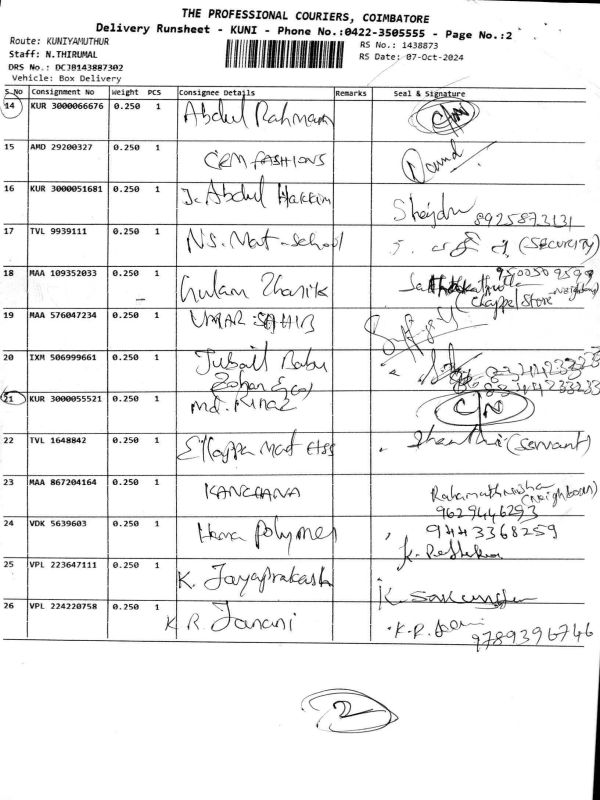 THE PROFESSIONAL COURIERS, COIMBATORE
Delivery Runsheet - KUNI - Phone No.:0422-3505555 - Page No.:2
Route: KUNIYAMUTHUR
RS No.: 1438873
Staff: N.THIRUMAL
RS Date: 07-Oct-2024
DRS No.: DCJB143887302
Vehicle: Box Delivery
S.No Consignment No Weight PCS Consignee Details Remarks Seal & Signature
14 KUR 3000066676 0.250 1 Abdul Rahman C/N
15 AMD 29200327 0.250 1 CRM FASHIONS
16 KUR 3000051681 0.250 1 J. Abdul Hakkim
8925873131
17 TVL 9939111 0.250 1 N.S. Mat-School (SECURITY)
18 MAA 109352033 0.250 1
(Chappel Store Neighbour)
19 MAA 576047234 0.250 1 UMAR SAHIB
20 IXM 506999661 0.250 1 Babu
21 KUR 3000055521 0.250 1 md. C/N
22 TVL 1648842 0.250 1 Mat Hss Shanthi (Servant)
23 MAA 867204164 0.250 1 KANCHANA (Neighbour)
9629446293
24 VDK 5639603 0.250 1 Polymer 9443368259
25 VPL 223647111 0.250 1 K. Jayaprakash
26 VPL 224220758 0.250 1 K R. Janani
9789396746
2